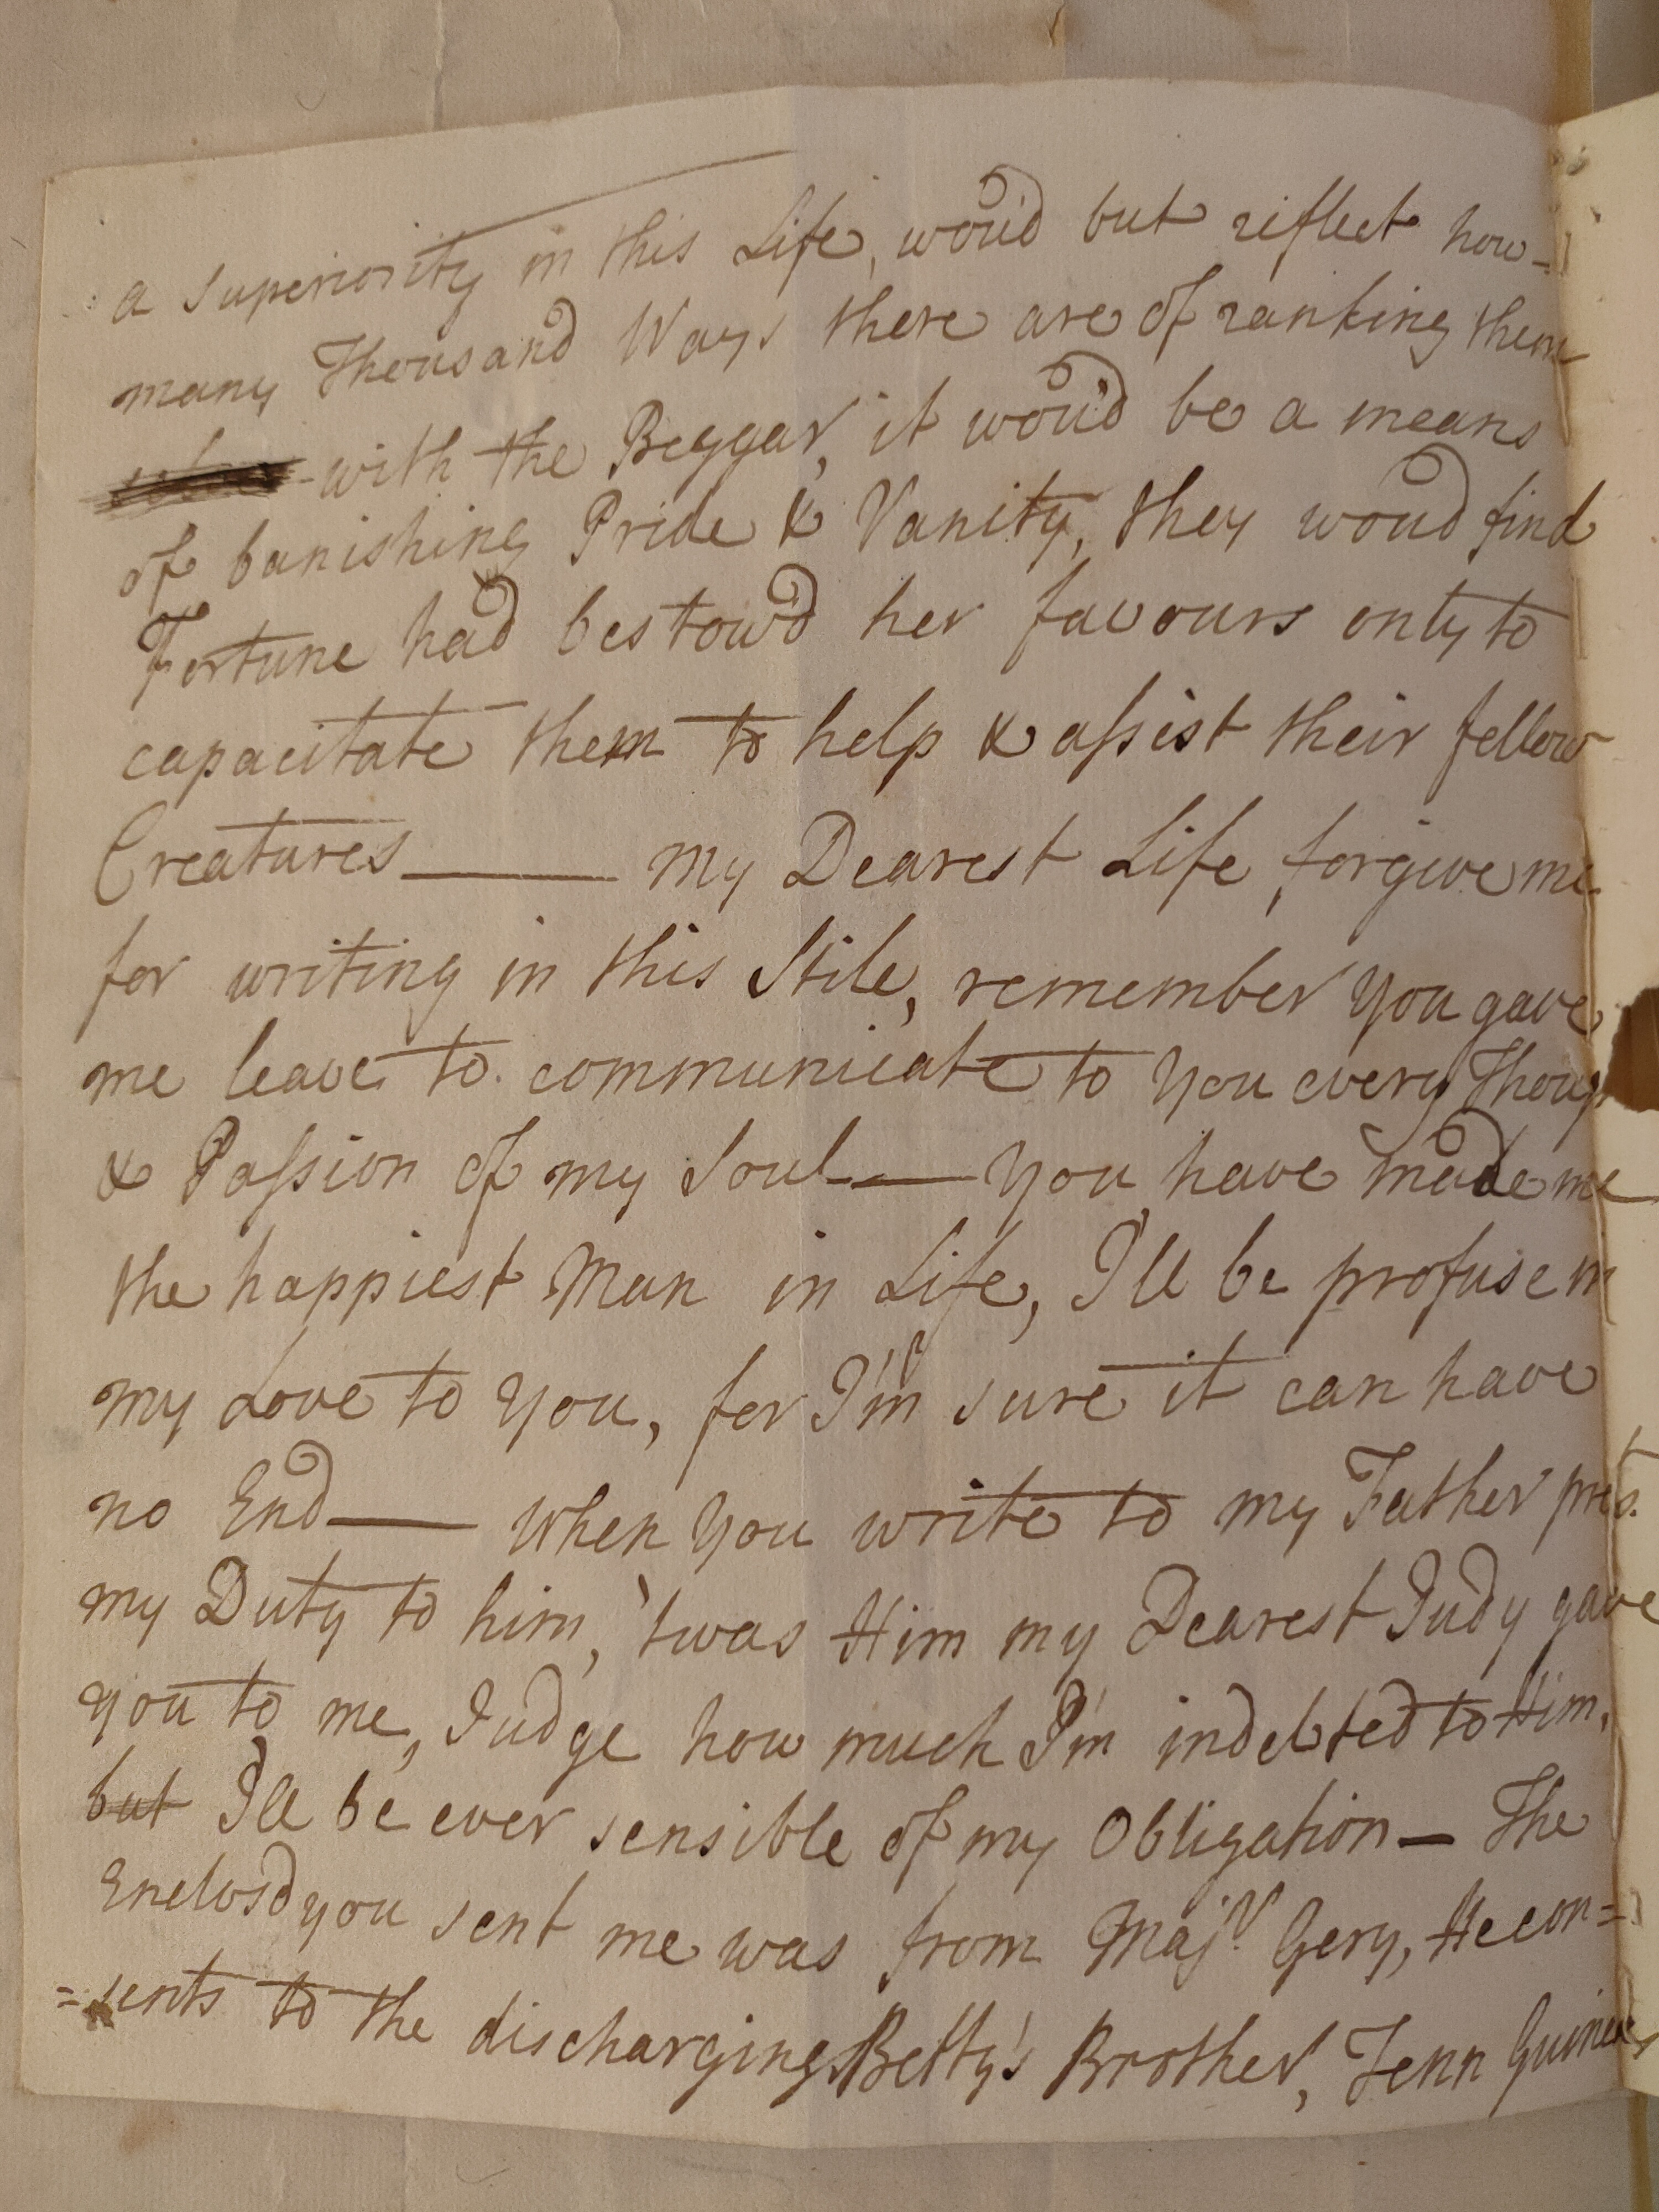 a superiority in this Life, wou'd but reflect how-
many Thousand Ways there are of ranking them
with the Beggar, it wou'd be a means
of banishing Pride & Vanity, they woud find
Fortune had bestow'd her favours only to
capacitate them to help & assist their fellow
Creatures —— my Dearest Life, forgive me
for writing in this Stile, remember you gave
me leave to communicate to you every Though
& Passion of my Soul —— you have made me
the happiest Man in Life, I'll be profuse in
my Love to you, for I'm sure it can have
no End —— when you write to my Father pres.
my Duty to him, 'twas Him my Dearest Judy gave
you to me, Judge how much I'm indebted to Him,
but I'll be ever sensible of my Obligation — The
Enclos'd you sent me was from Maj.r Gery, He con=
=sents to the discharging Betty's Brother, Tenn Guineas